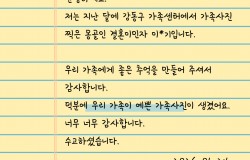 저는 지난 달에 강동구 가족센터에서 가족사진
찍은 몽골인 결혼이민자 이*기입니다.
우리 가족에게 좋은 추억을 만들어 주셔서
감사합니다.
덕분에 우리 가족이 예쁜 가족사진이 생겼어요.
너무 너무 감사합니다.
수고하셨습니다.